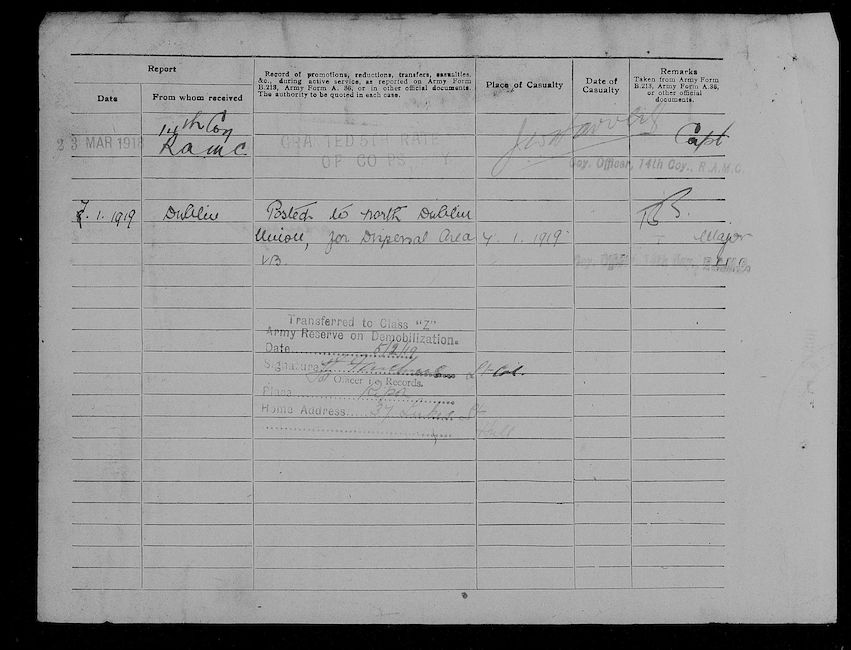 Report
Date
From whom received
Record of promotions, reductions, transfers, casualties,
&c., during active service, as reported on Army Form
B.213, Army Form A. 36, or in other official documents.
The authority to be quoted in each case.
Place of Casualty
Date of
Casualty
Remarks
Taken from Army Form
B.213, Army Form A.36,
or other official
documents.
23 MAR 1918
14th Coy
RAMC
GRANTED 5TH RA
OF CORPS PAY
Capt
Coy. Officer, 14th Coy., R.A.M.C.
7.1.1919
Dublin
Posted to North Dublin
Union, for Dispersal Area
VB.
7.1.1919
Major
Transferred to Class "Z"
Army Reserve on Demobilization.
Date 5/2/19
Signature Lt Col.
for Officer i/c Records.
Place Ripon
Home Address 37 St
Hull